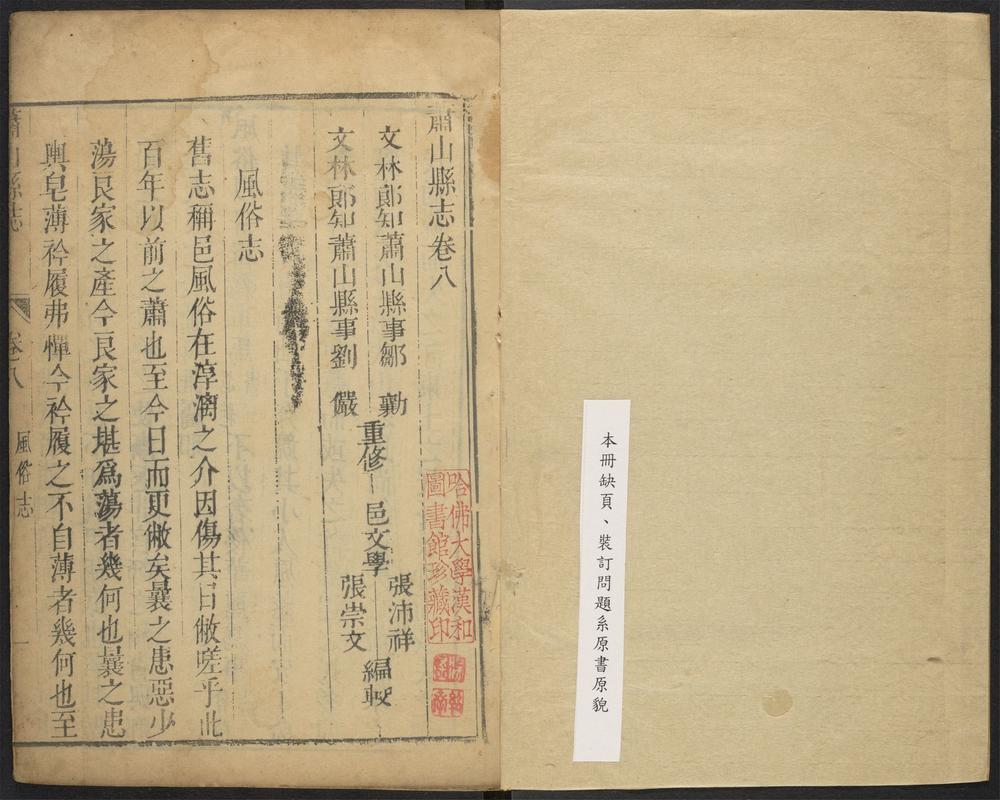 本冊缺頁、裝訂問題系原書原貌
蕭山縣志卷八
文林郎知蕭山縣事鄒 勷
文林郎知蕭山縣事劉 儼
重修
邑文學
張沛祥
張崇文
編較
哈佛大學漢和
圖書館珍藏印
風俗志
舊志稱邑風俗在淳漓之介因傷其日敝嗟乎此
百年以前之蕭也至今日而更敝矣曩之患惡少
蕩良家之產今良家之堪爲蕩者幾何也曩之患
輿皂薄衿履弗憚今衿履之不自薄者幾何也至
蕭山縣志
卷八
風俗志
一